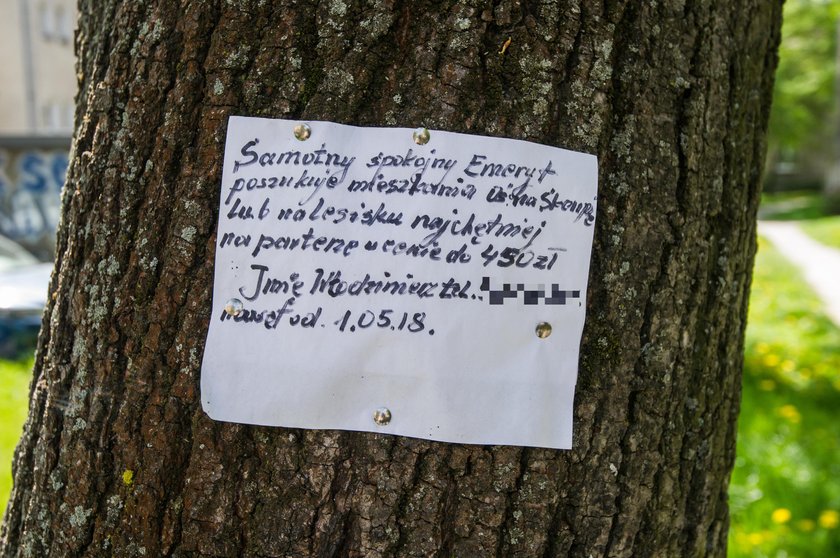 Samotny spokojny Emeryt
poszukuje mieszkania oś. na Skarpie
lub na lesisku najchętniej
na parterze w cenie do 450 zł
Imię Włodzimierz tel.
nawet od. 1.05.18.